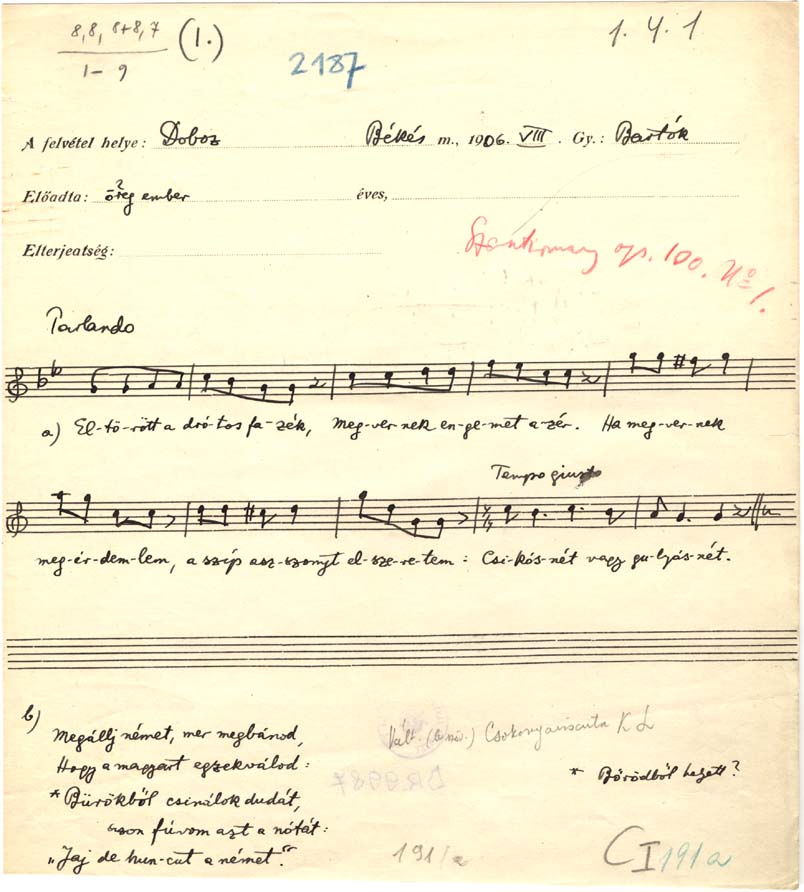 8, 8, 8+8, 7 (1.) 1. 4. 1
1-9
2187
A felvétel helye: Doboz Békés m., 1906. VIII. Gy.: Bartók
Előadta: öreg ember éves,
Elterjeatség:
op. 100. No 1.
Parlando
a) El-tö-rött a dró-tos fa-zék, Meg-ver-nek en-ge-met a-zér. Ha meg-ver-nek
Tempo giusto
meg-ér-dem-lem, a szíp asz-szonyt el-sze-re-tem: Csi-kós-nét vagy gu-lyás-nét.
b)
Megállj német, mer megbánod,
Hogy a magyart egzekválod:
* Bürökből csinálok dudát,
azon fúvom azt a nótát:
„Jaj de hun-cut a német."
Vált. Csokonyavisonta K L
* Bőrödből helyett?
BR 9987
191/a
C I 191a